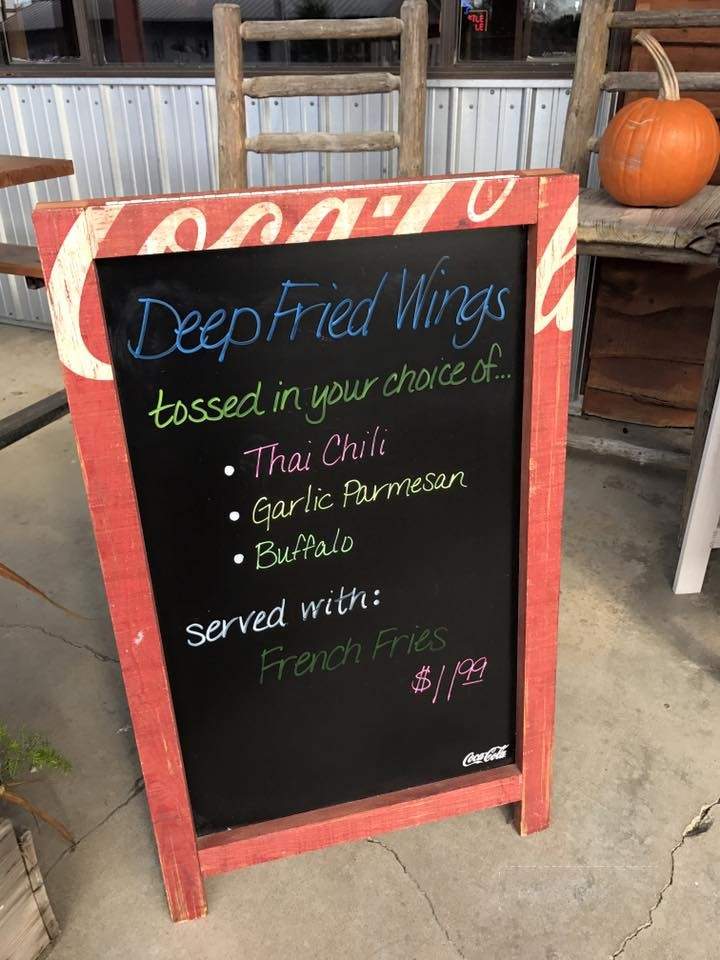 Coca-Co
Deep Fried Wings
tossed in your choice of...
• Thai Chili
• Garlic Parmesan
• Buffalo
served with:
French Fries
$11.99
Coca-Cola